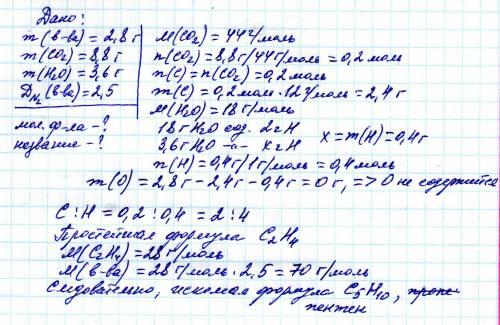 Дано:
m(в-ва) = 2,8 г
m(CO₂) = 8,8 г
m(H₂O) = 3,6 г
D N₂ (в-ва) = 2,5
мол. ф-ла - ?
название - ?
M(CO₂) = 44 г/моль
n(CO₂) = 8,8 г/44 г/моль = 0,2 мол
n(C) = n(CO₂) = 0,2 моль
m(C) = 0,2 моль · 12 г/моль = 2,4 г
M(H₂O) = 18 г/моль
18 г H₂O сод. 2 г H
3,6 г H₂O -"- x г H
x = m(H) = 0,4 г
n(H) = 0,4 г/1 г/моль = 0,4 моль
m(O) = 2,8 г - 2,4 г - 0,4 г = 0 г, => O не содержится
C : H = 0,2 : 0,4 = 2 : 4
Простейшая формула C₂H₄
M(C₂H₄) = 28 г/моль
M(в-ва) = 28 г/моль · 2,5 = 70 г/моль
Следовательно, искомая формула C₅H₁₀,
пентен